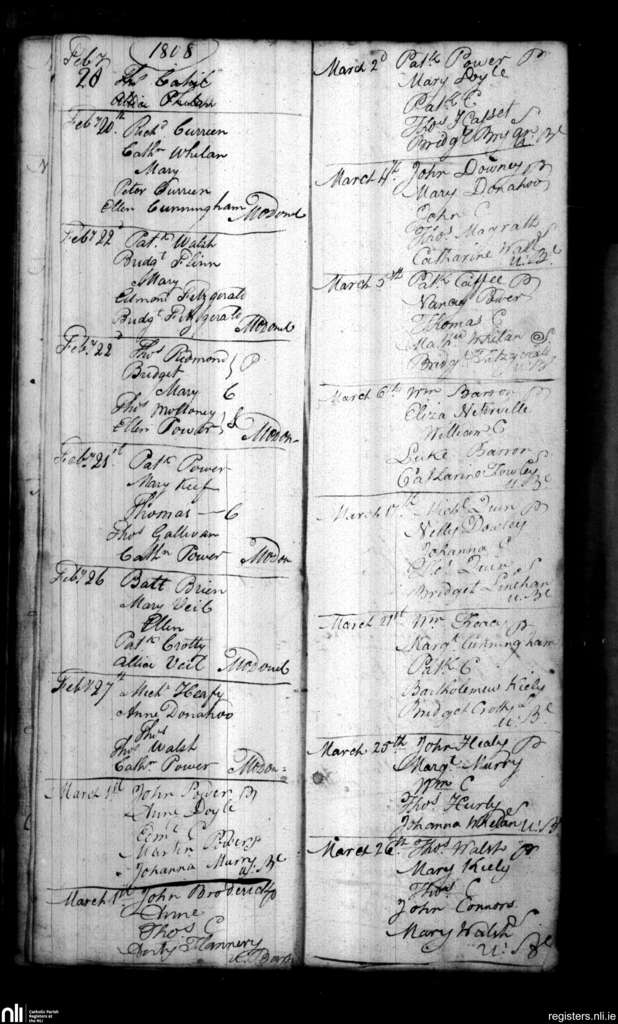 1808
Feby
20 Thos Cahil
Allice Phelan
Feby 20th Richd Curreen
Cathn Whelan
Mary
Peter Curreen
Ellen Cunningham McDonel
Feby 22d Patk Walsh
Budgt Flinn
Mary
Edmond Fitzgerald
Budgt Fitzgerald McDonel
Feby 22d Thos Redmond } P
Bridget
Mary C
Thos Molloney } S
Ellen Power McDon-
Feby 21st Patk Power
Mary Keef
Thomas — C
Thos Gallivan
Cathn Power McDon
Feby 26 Batt Brien
Mary Veil
Ellen
Patk Crotty
Allice Veil McDonel
Feby 27th Michl Heafy
Anne Donahoo
Thos
Thos Walsh
Cathn Power McDon-
March 1st John Power P
Anne Doyle
Edmd C
Martin Power
Johanna Murry S
March 1st John Broderick P
Anne
Thos C
Darby Flannery
March 2d Patk Power P
Mary Doyle
Patk C
Thos Hasset
Bridgt
March 4th John Downey P
Mary Donahoo
John C
Thos Magrath
Catharine Wall S
March 5th Patk Caffee P
Nancy Power
Thomas C
Mathw Whelan S
Bridgt Fitzgerald
March 6th Wm Barron P
Eliza Neterville
William C
Luke Barron
Catharine Fowley S
March 17th Michl Quin P
Nelly Dowley
Johanna C
Quin
Bridget Linehan S
March 21st Wm P
Margt Cunningham
Patk C
Bartholemew Kiely
Bridget Crotty S
March 25th John Healy P
Margt Murry
Wm C
Thos Hurly
Johanna Whelan S
March 26th Thos Walsh P
Mary Kiely
Thos C
John Connors
Mary Walsh S
nli
Catholic Parish
Registers at
the NLI
registers.nli.ie